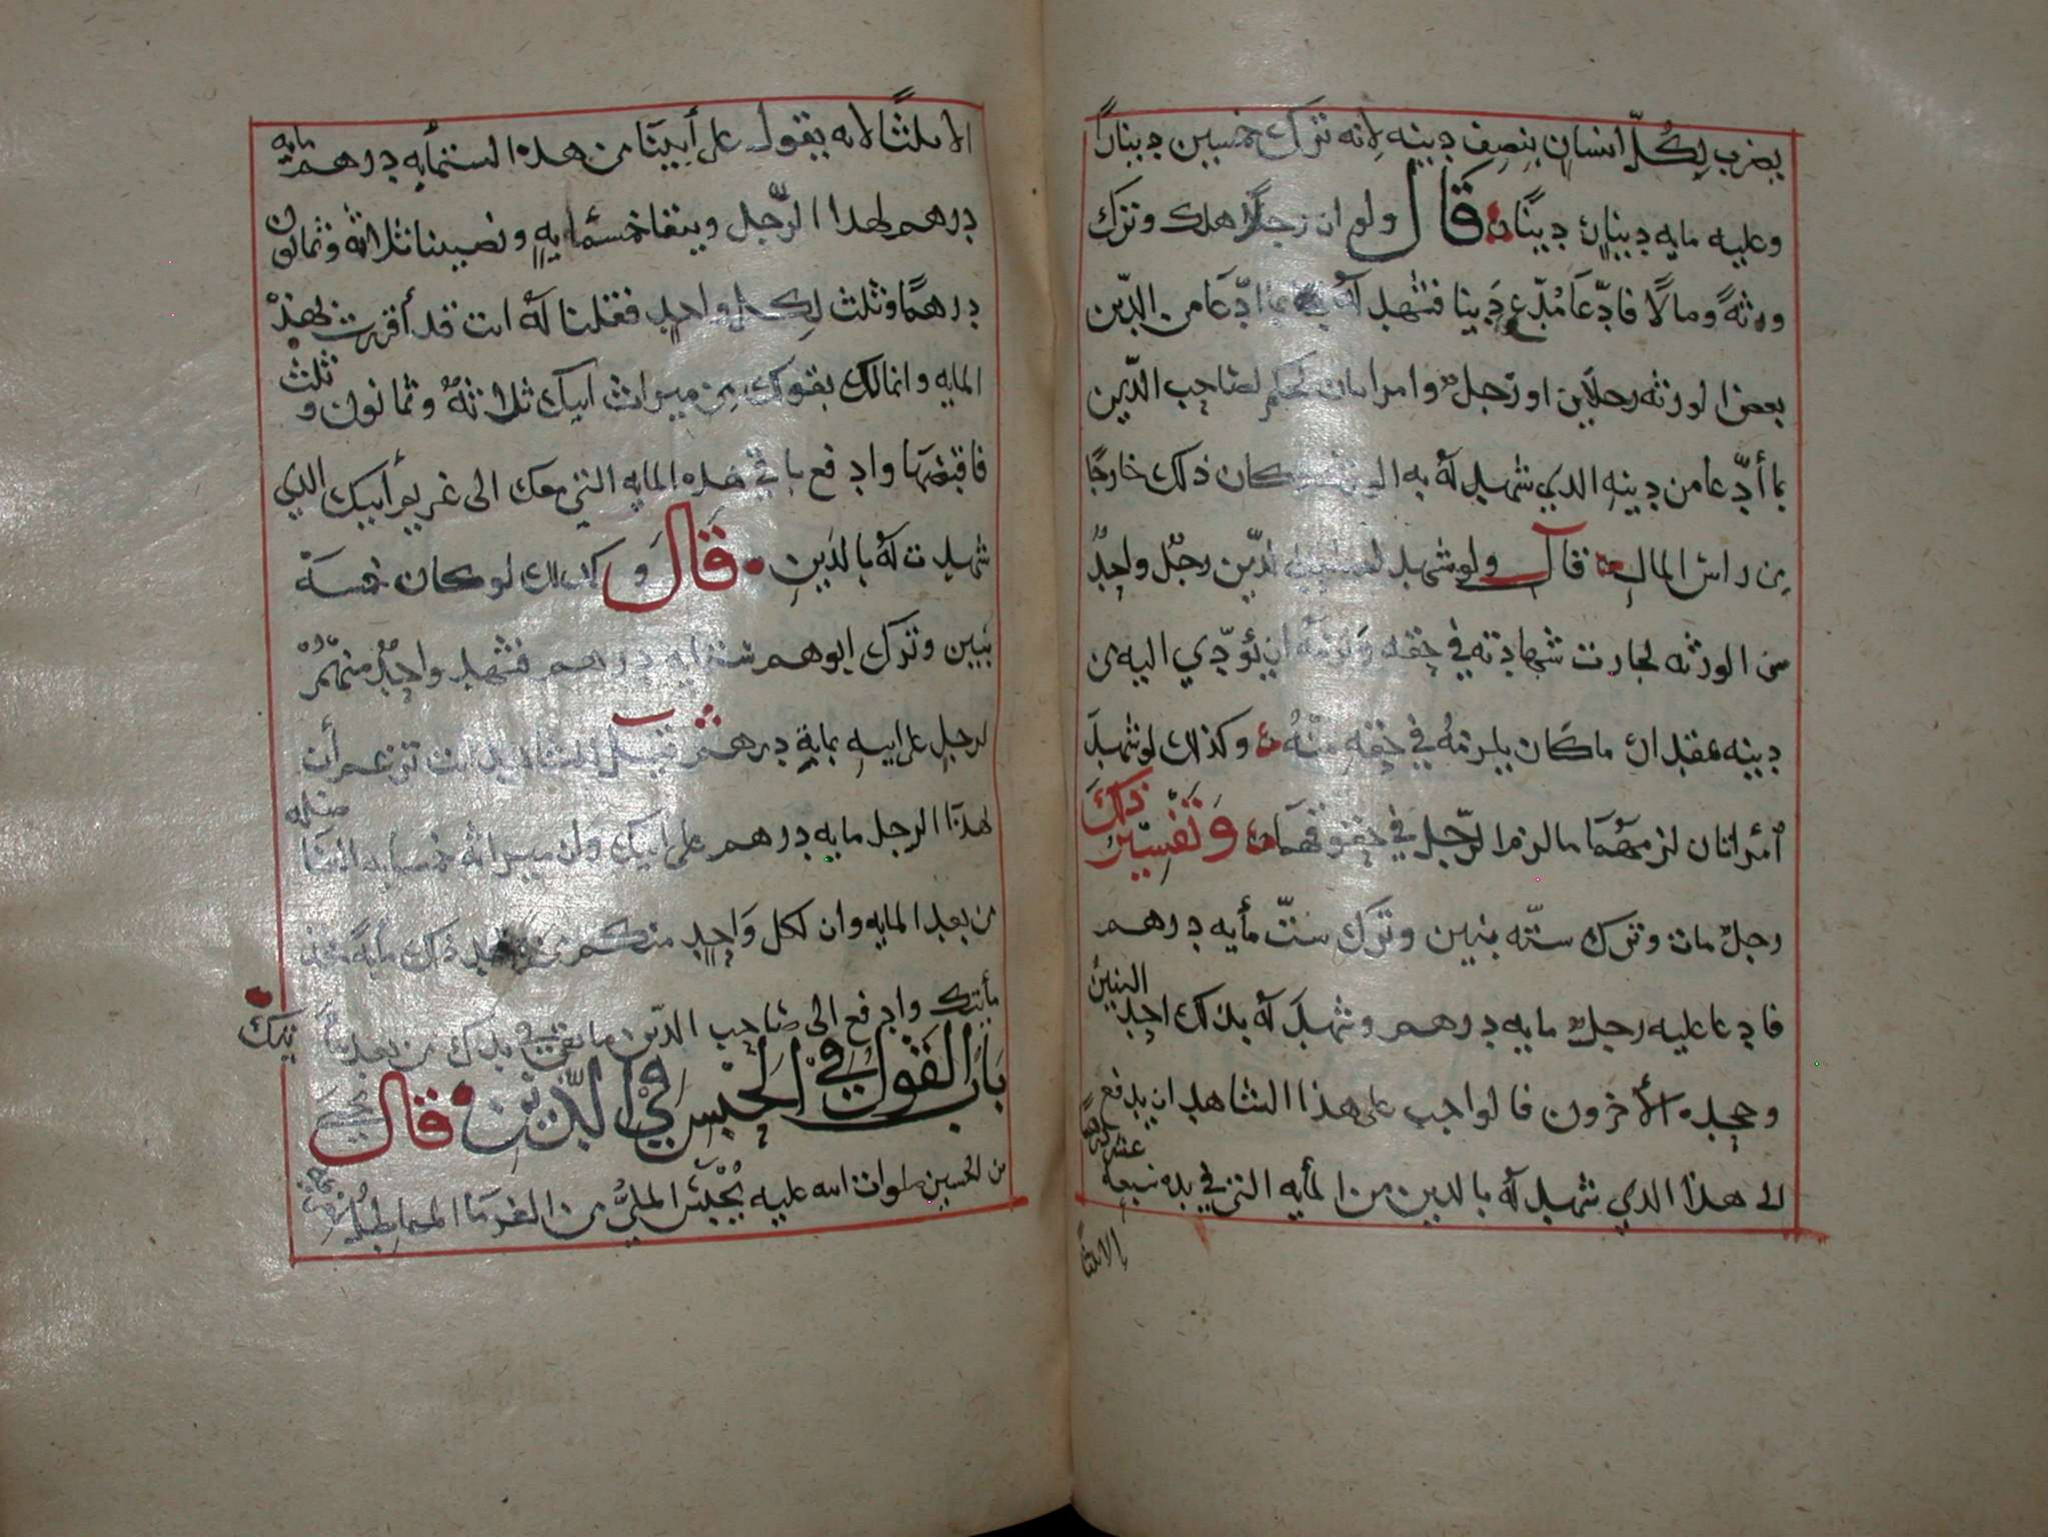 يضرب لِكُلّ انسان بنصف دينه لانه ترك خمسين دينارًا
وعليه مايه دينار دينًا قَالَ ولو ان رجلًا هلك وترك
ورثةً ومالًا فادّعَا مُدّعٍ دَينا فشهد لهُ بما ادّعَا من الدّين
بعض الورثه رجلان او رجل وامراتان لحكم لصاحب الدّين
بما أدّعا من دينه الذي شهد لهُ به وكان ذلك خارجًا
من راس المال قال ولو شهد لصاحب الدّين رجُل واحِدٌ
من الورثه لجازت شهادته في حقه ولزمهُ ان يُؤدّي اليه من
دينه بمقدار ما كان يلزمهُ في حقه منهُ وكذلك لو شهدَ
أمرأتان لزمهُمَا ما لزم الرّجل في حقوقهمَا وتَفسِيْر ذلك
رجلٌ مات وترك ستّه بنين وترك ستّ مأيه درهم
فادعا عليه رجلٌ مايه درهم وشهدَ لهُ بذلك احد البنين
وجحده الأخرون فالواجب على هذا الشاهد ان يدفع
الى هذا الذي شهد لهُ بالدين من المأيه التي في يده سبعه عشر درهمًا
إلا ثلثًا
الا ثلثًا لانه يقول على أبينا من هذه الستمأيه درهم مايه
درهم لهذا الرّجل ويبقا خمسمأيهٍ ونصيبنا ثلاثة وثمانون
درهمًا وثلث لِكل واحدٍ فقلنا لهُ انت قد أقررت بهذه
المايه وانما لك بقولك من ميراث ابيك ثلاثهٌ وثمانون وثلث
فاقبضها وادفع باقي هذه المايه التي معك الى غريم أبيك الذي
شهدت لهُ بالدَين قَالَ وكذلك لو كان خمسة
بَنِين وترك ابوهم ستمايه درهم فشهد واحِدٌ منهُمْ
لرجلٍ على ابيه بمايةِ درهم قيل للشاهد انت تزعم أن
لهذا الرجل مايه درهم على ابيك وان ميراثه خمسمايه
من بعد المايه وان لكل وَاحِدٍ منكم من بعد ذلك مأيةً فخذ
مأيتك وادفع الى صَاحِب الدّين ما بقي في يدك من بعد مأيتك
بَابُ القَول في الحَبْسِ في الدَّيْن قال يحيى
بن الحسين صلوات الله عليه يُحْبَسُ المليُّ من الغرمَا المماطِلُ